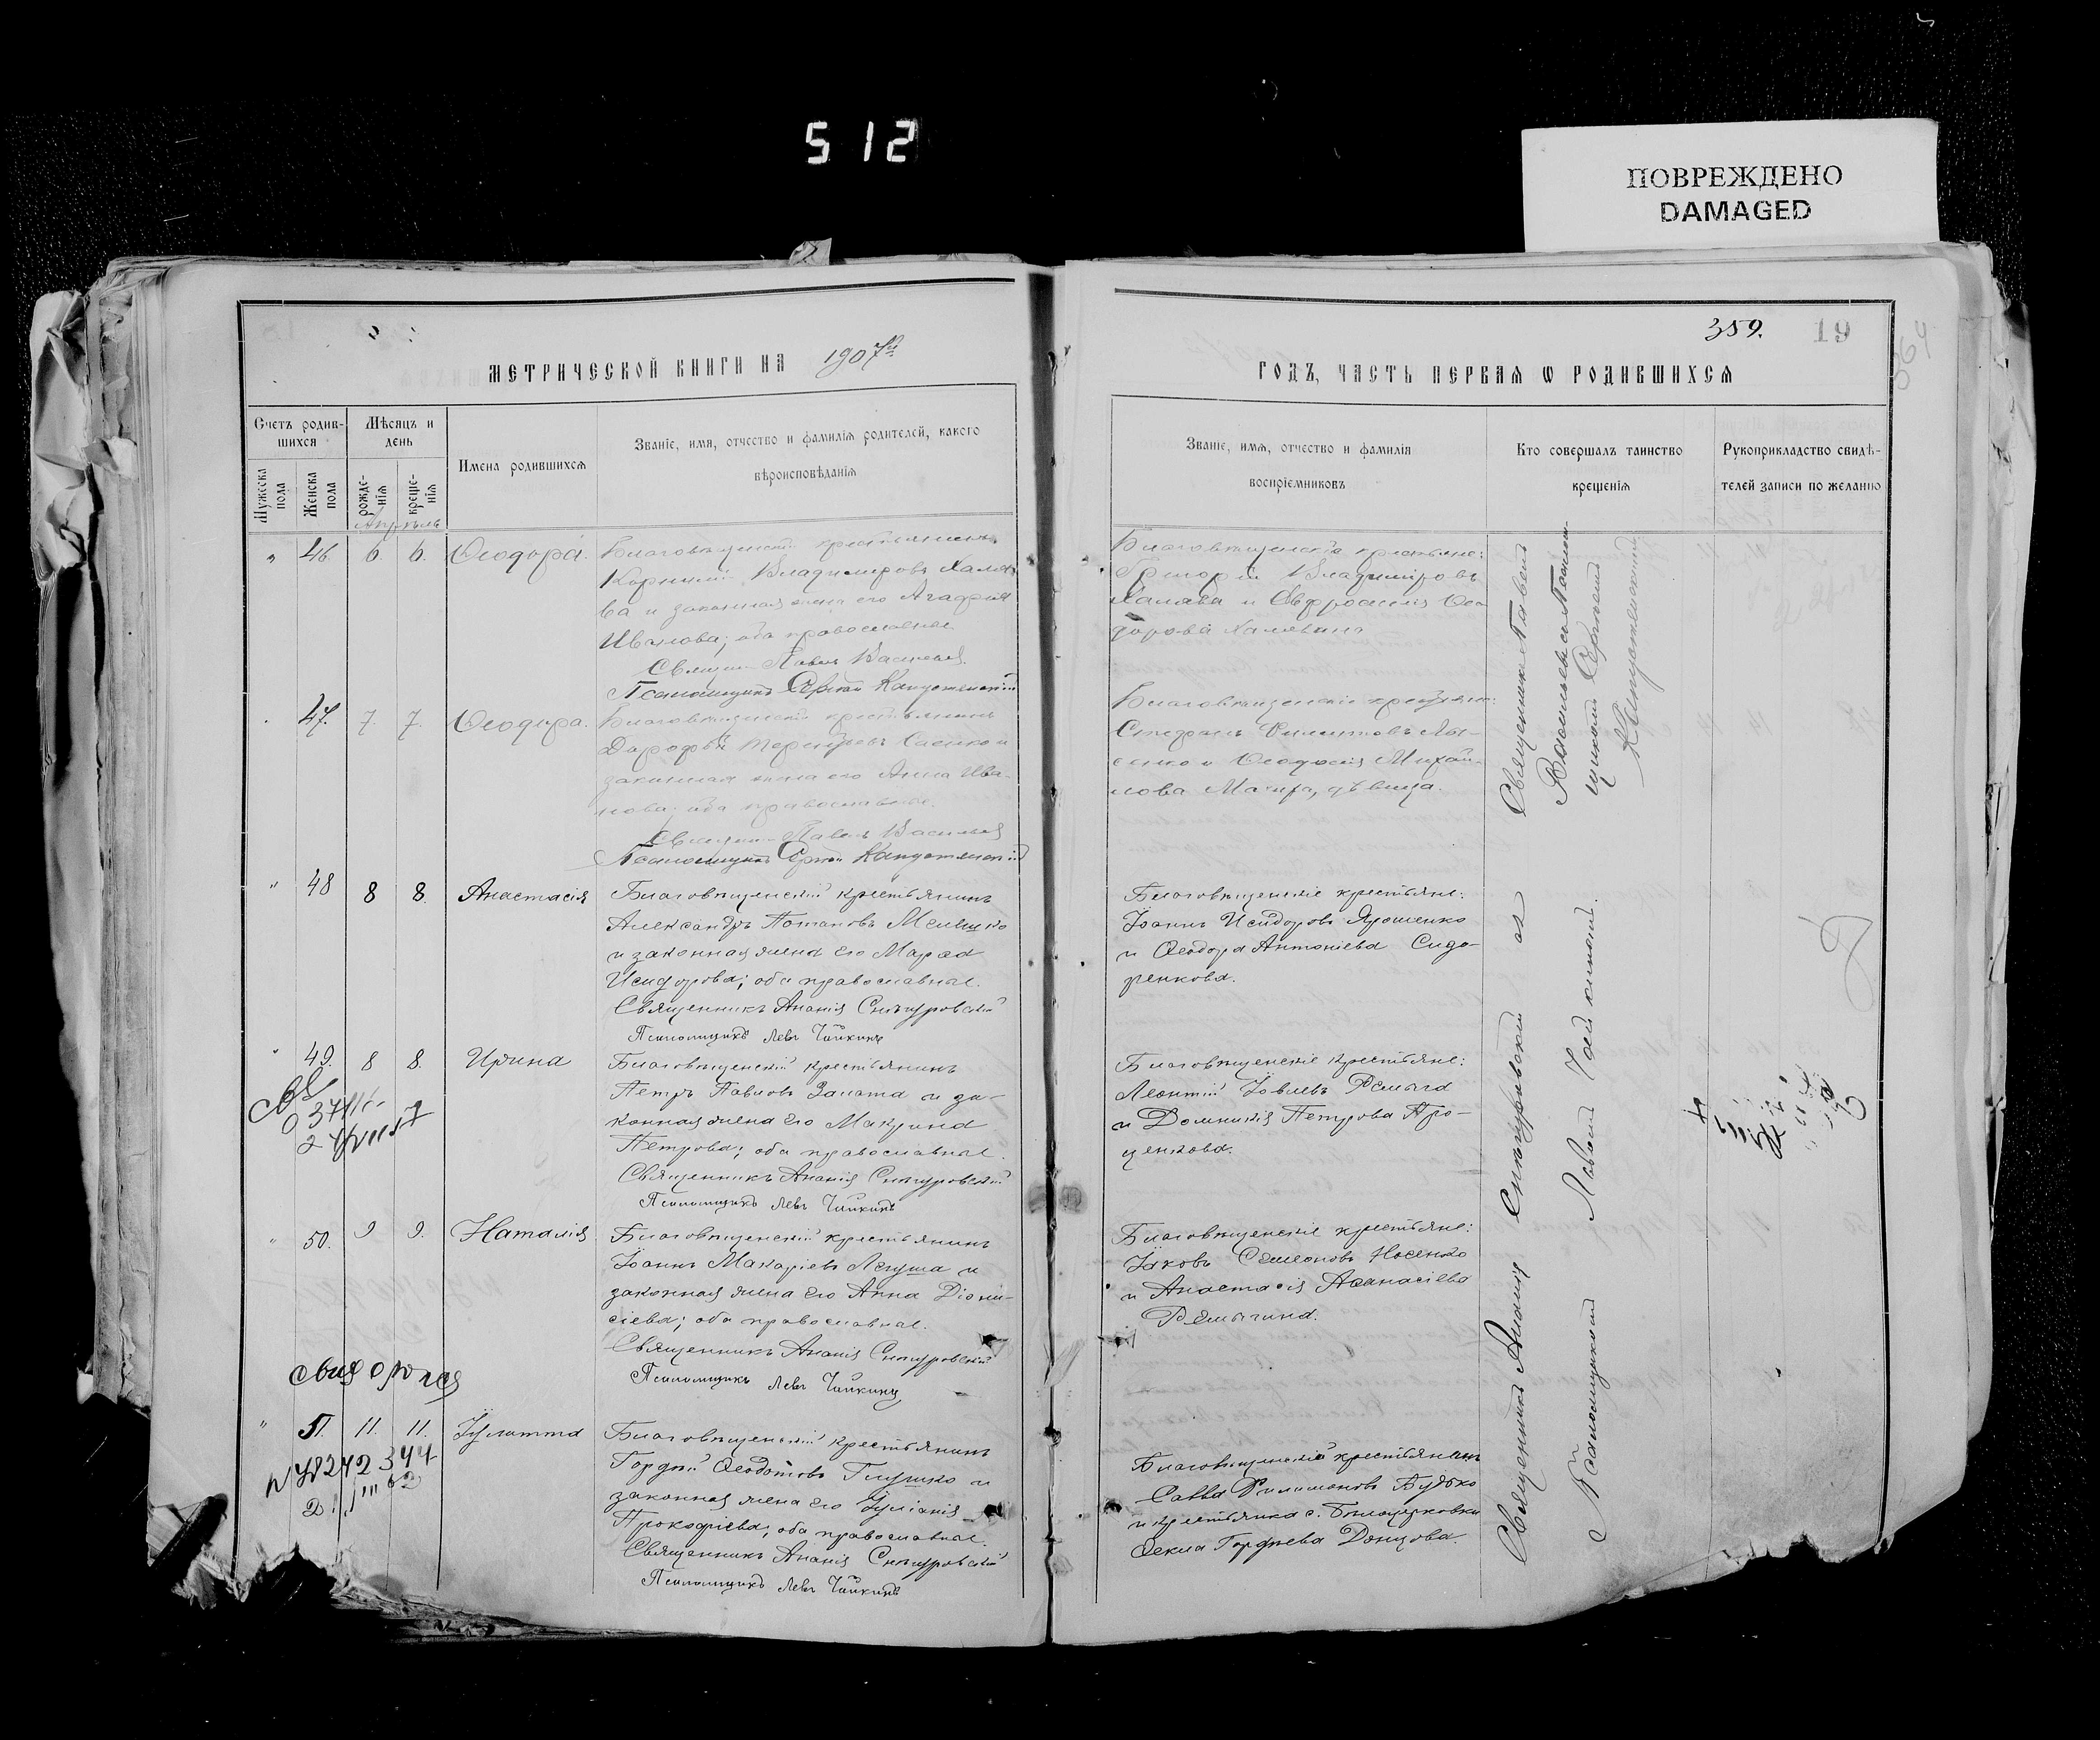 512
ПОВРЕЖДЕНО
DAMAGED
359. 19
МЕТРИЧЕСКОЙ КНИГИ НА 1907й
ГОДЪ, ЧАСТЬ ПЕРВАЯ Ѡ РОДИВШИХСЯ
Счетъ родив-
шихся
Мужеска
пола
Женска
пола
Мѣсяцъ и
день
рожде-
нія
креще-
нія
Имена родившихся
Званіе, имя, отчество и фамилія родителей, какого
вѣроисповѣданія
Званіе, имя, отчество и фамилія
воспріемниковъ
Кто совершалъ таинство
крещенія
Рукоприкладство свидѣ-
телей записи по желанію
Апрѣль
" 46 6. 6. Ѳеодора.
Благовѣщенскій крестьянинъ
Корнилій Владиміровъ Халя-
ва и законная жена его Агафія
Иванова; оба православные
Священ. Павелъ Васильевъ
Псаломщикъ Сергій Капустянскій
Благовѣщенскіе крестьяне:
Григорій Владиміровъ
Халява и Евфросинія Ѳео-
дорова
47. 7. 7. Ѳеодора.
Благовѣщенскій крестьянинъ
Дорофей Терентьевъ и
законная жена его Анна Ива-
нова; оба православные.
Священ. Павелъ Васильевъ
Псаломщикъ Сергій Капустянскій
Благовѣщенскіе крестьяне:
Стефанъ Филиповъ Лы-
сенко и Ѳеодосія Михай-
лова дѣвица.
Священникъ Павелъ
Васильевъ съ Псалом-
щикомъ Сергіемъ
Капустянскимъ
" 48 8 8. Анастасія
Благовѣщенскій крестьянинъ
Александръ Потаповъ
и законная жена его Марѳа
Исидорова; оба православные.
Священникъ Ананія Снѣгуровскій
Псаломщикъ Левъ Чайкинъ
Благовѣщенскіе крестьяне:
Іоаннъ Исидоровъ Ярошенко
и Ѳеодора Антоніева Сидо-
ренкова.
" 49. 8 8. Ирина
Благовѣщенскій крестьянинъ
Петръ Павловъ Запота и за-
конная жена его Макрина
Петрова; оба православные.
Священникъ Ананія Снѣгуровскій
Псаломщикъ Левъ Чайкинъ
Благовѣщенскіе крестьяне:
Леонтій Іовлевъ
и Домникія Петрова Про-
ценкова.
" 50. 9 9. Наталія
Благовѣщенскій крестьянинъ
Іоаннъ Макаріевъ Легуша и
законная жена его Анна Діони-
сіева; оба православные.
Священникъ Ананія Снѣгуровскій
Псаломщикъ Левъ Чайкинъ
Благовѣщенскіе крестьяне:
Іаковъ Семеоновъ Носенко
и Анастасія Аѳанасіева
" 51. 11. 11. Іулитта
Благовѣщенскій крестьянинъ
Гордѣй Ѳеодотовъ Глушко и
законная жена его Іуліанія
Прокофіева; оба православные.
Священникъ Ананія Снѣгуровскій
Псаломщикъ Левъ Чайкинъ
Благовѣщенскій крестьянинъ
Савва Филимоновъ Будько
и крестьянка с. Бѣлоцерковки
Ѳекла Гордѣева Донцова.
Священникъ Ананія Снѣгуровскій съ
Псаломщикомъ Львомъ Чайкинымъ.